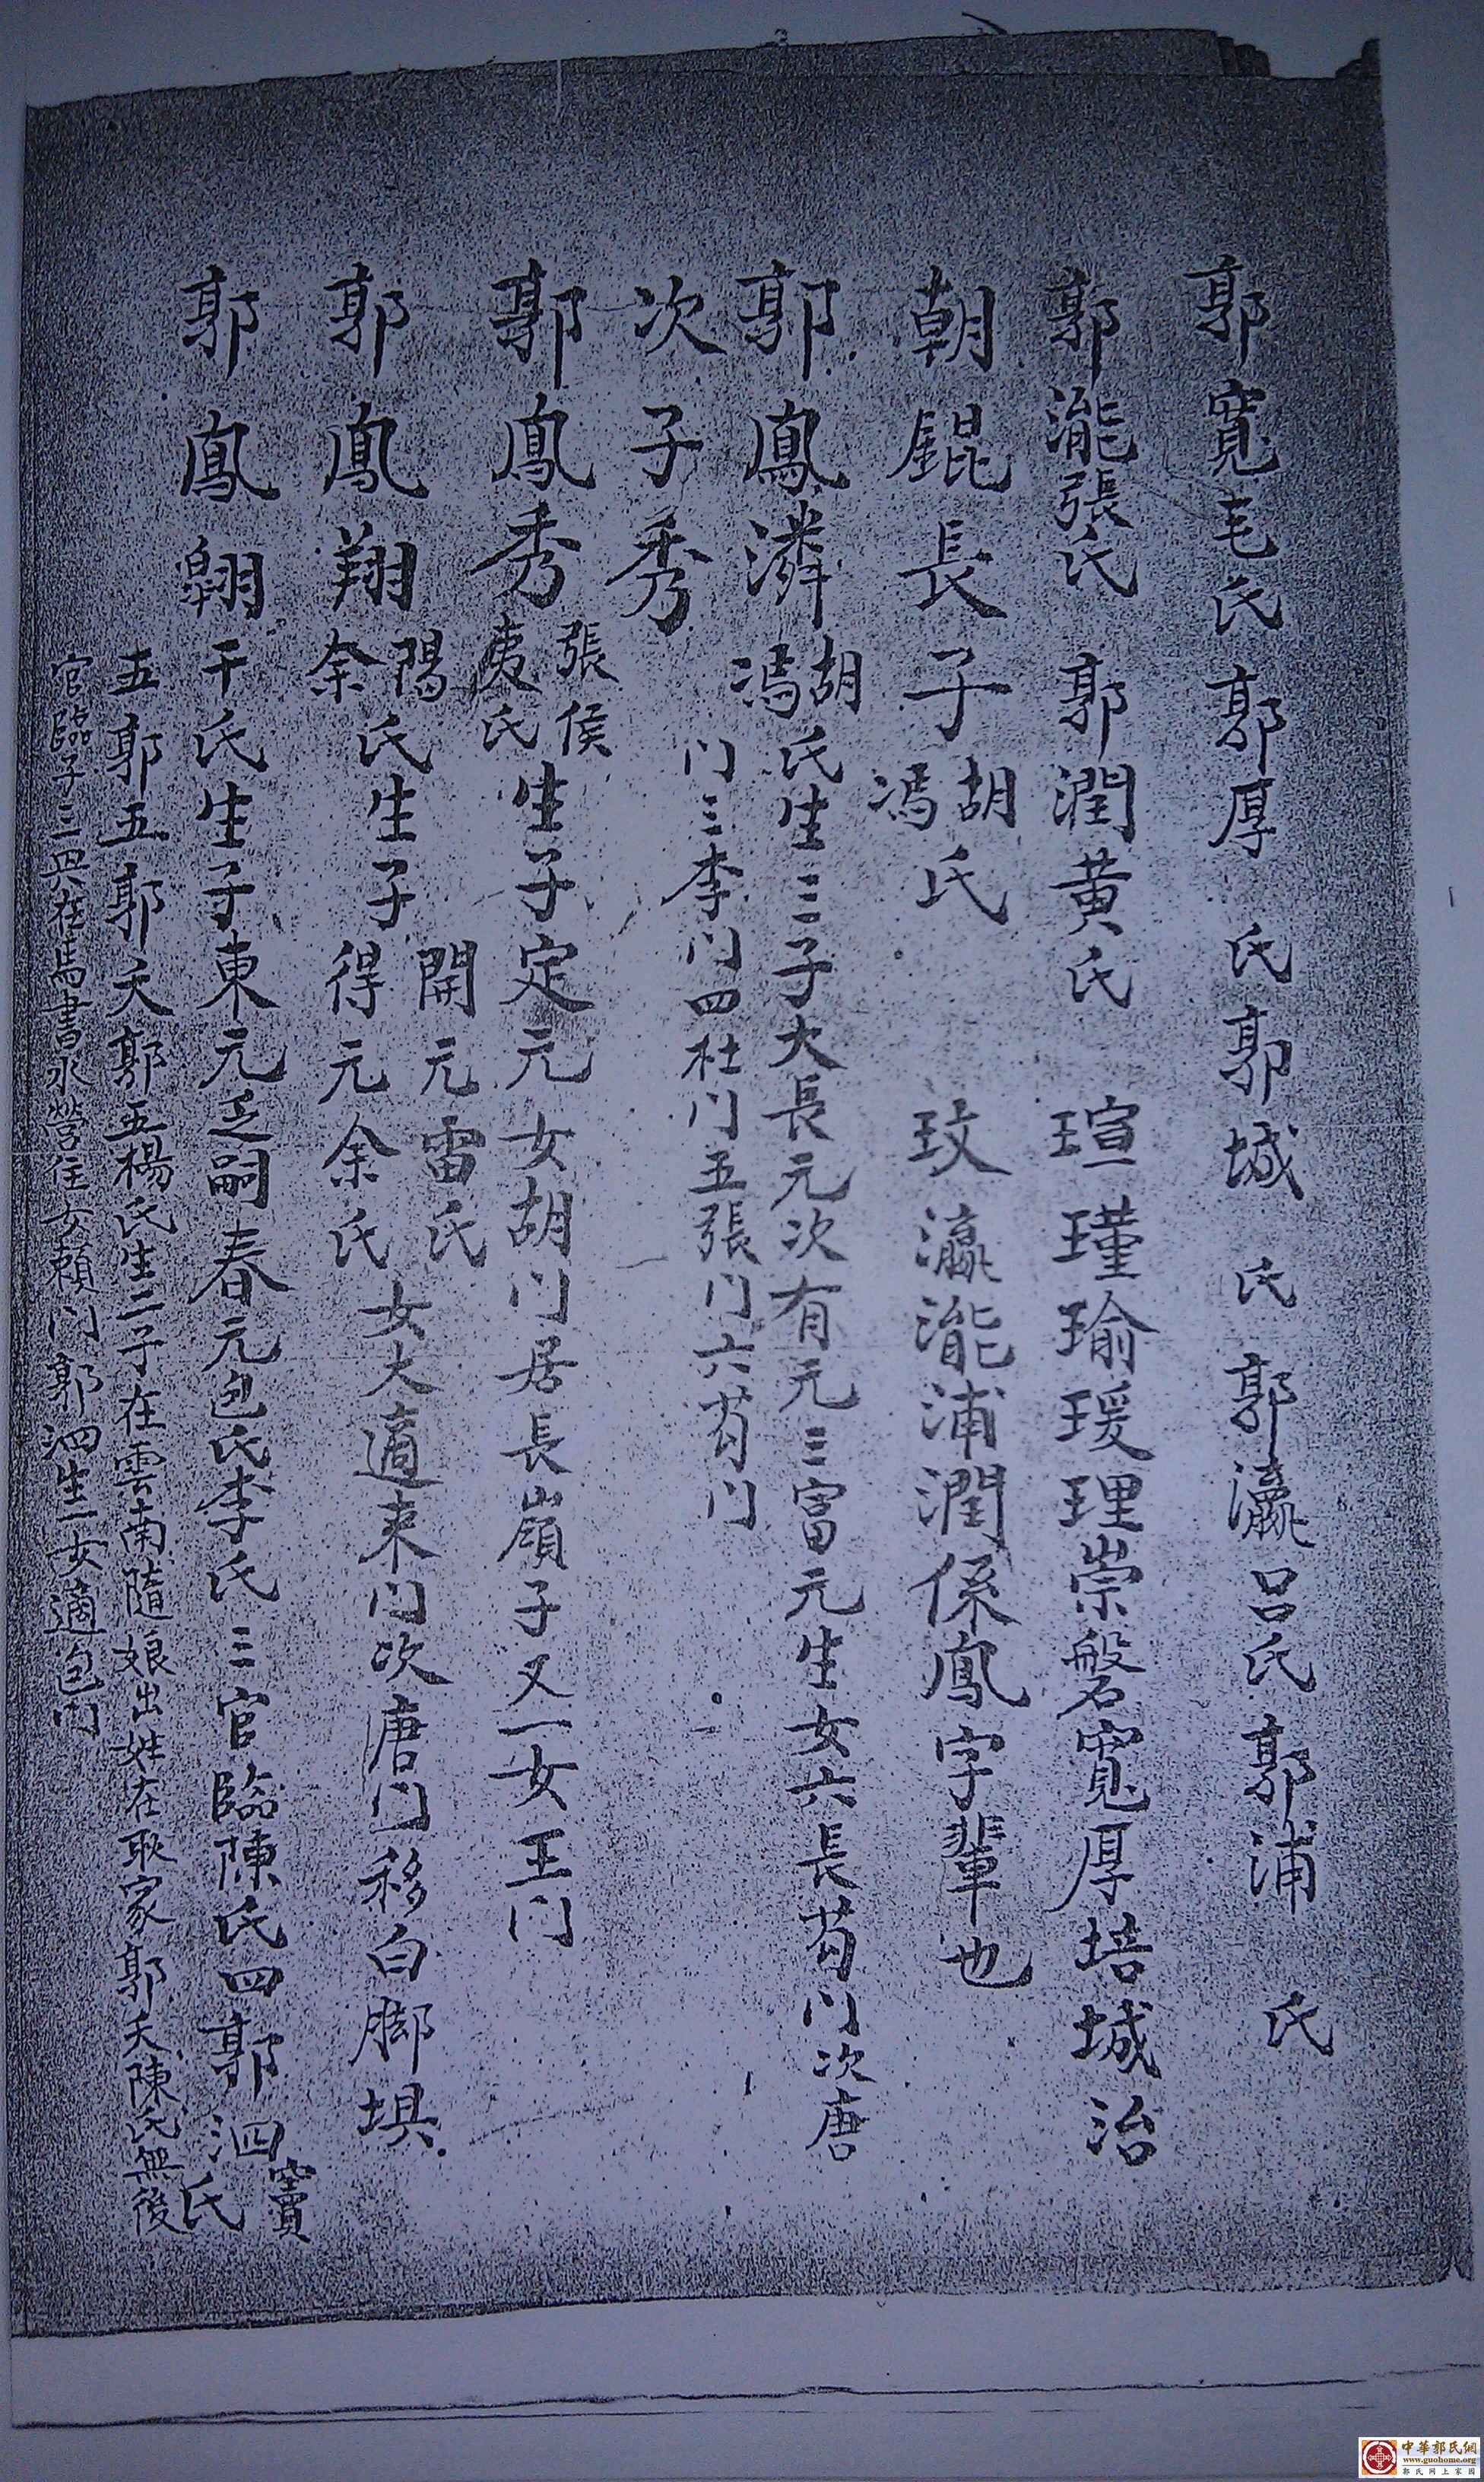 郭寬毛氏 郭厚 氏 郭城 氏 郭瀛呂氏 郭浦 氏
郭瀧張氏 郭潤黃氏 瑄瑾瑜瑗理崇磐寬厚培城治
朝錕長子胡馮氏 玟瀛瀧浦潤係鳳字輩也
郭鳳潾胡馮氏生三子大長元次有元三富元生女六長苟门次唐
门三李门四杜门五張门六苟门
次子秀
郭鳳秀張侯 氏生子定元女胡门居長嶺子又一女王门
郭鳳翔陽余氏生子開元雷氏得元余氏女大適来门次唐门移白脚垻
郭鳳翱干氏生子東元乏嗣春元包氏李氏三官臨陳氏四郭泗竇氏
五郭五郭夭郭五楊氏生二子在雲南隨娘出姓在耿家郭夭陳氏無後
官臨子三 在馬書水營住女賴门郭泗生一女適包门
中華郭氏網
www.guohome.org
郭氏网上家园